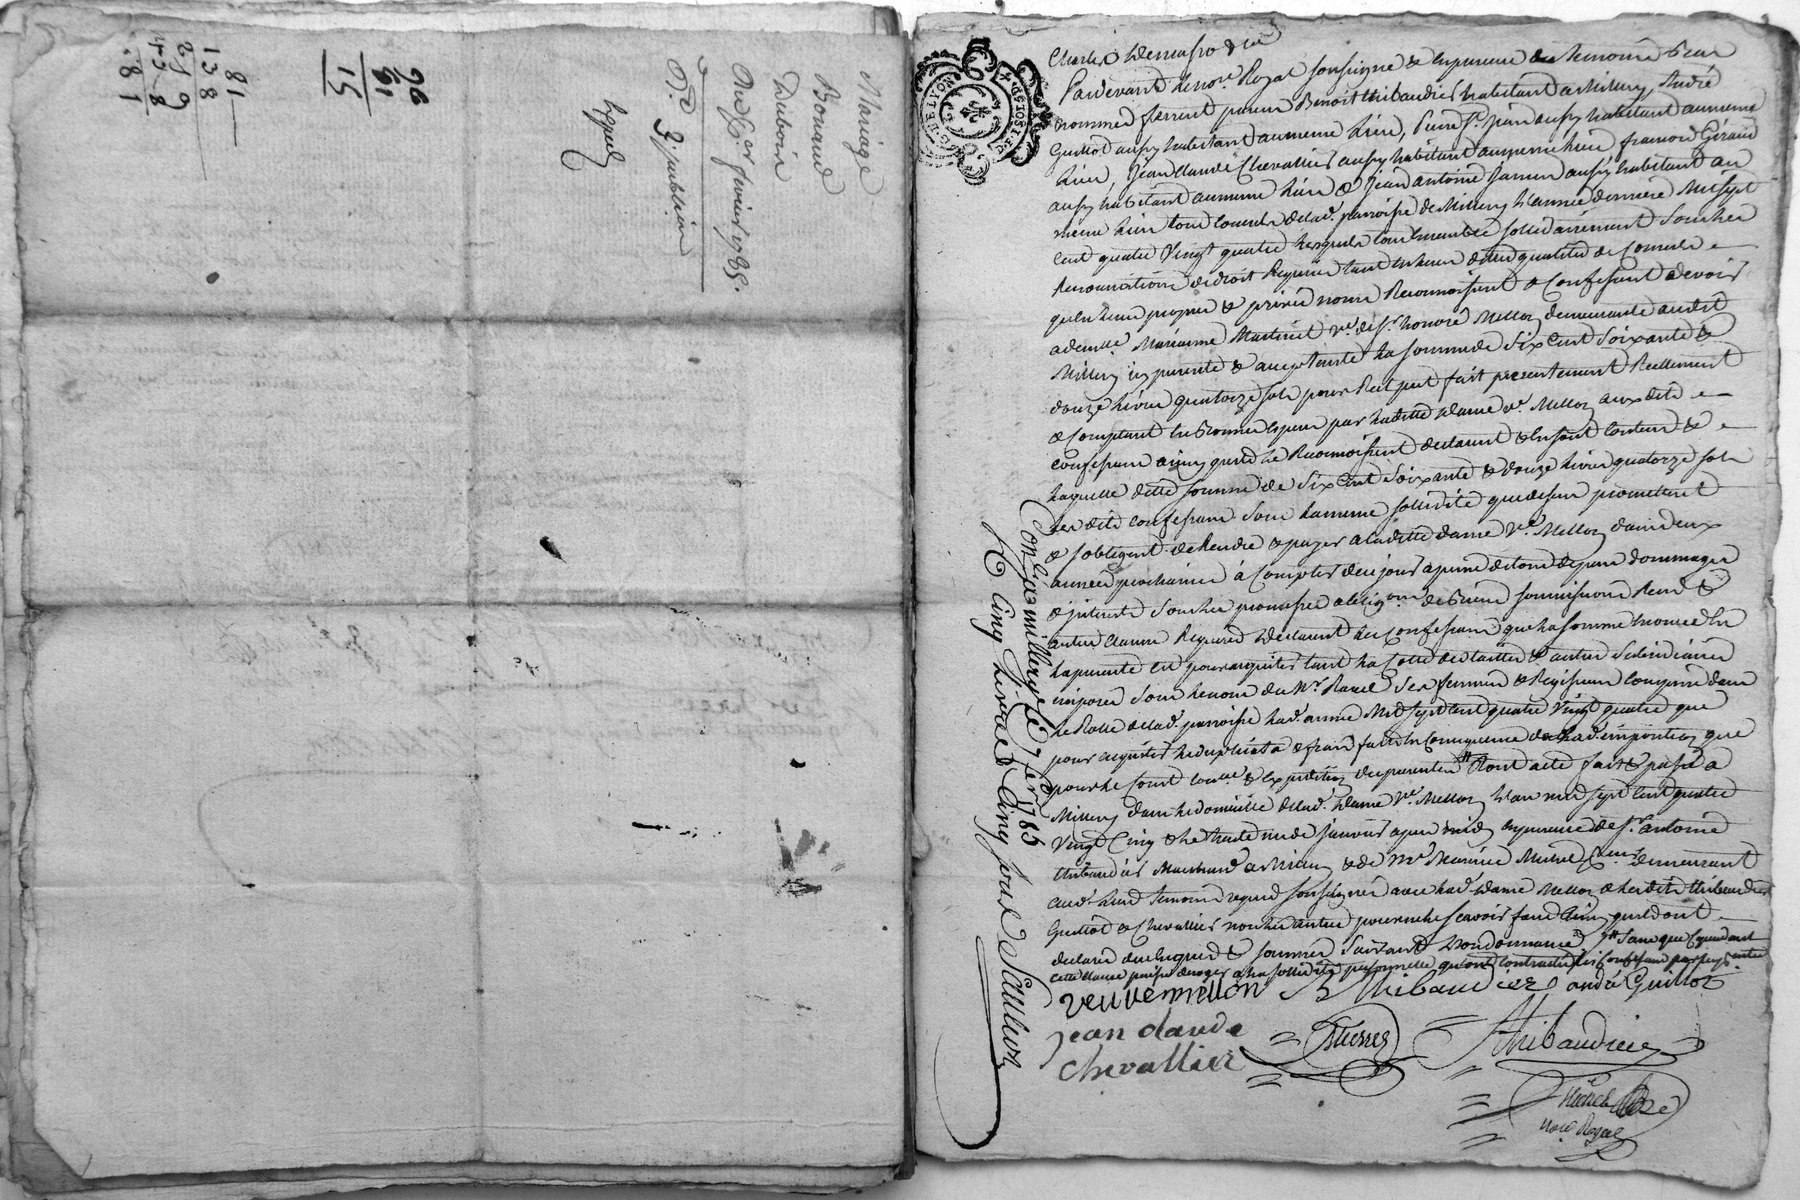 Mariage
Bonnand
Dubroin
Du 1er fevrier 1785.
3e publiée
26
61
15
81
138
219
438
181
G. DE LYON
Pardevant le nore Royal soussigné & en presence des temoins
nommés furent présens Benoit thibaudier habitant a Millery, André
Guillot aussy habitant au meme lieu, Pierre St. jean aussy habitant au meme
lieu, Jean Claude Chevallier aussy habitant au meme lieu francois Giraud
aussy habitant au meme lieu & jean antoine aussy habitant au
meme lieu tous consuls de lad. parroisse de Millery l'année derniere Mil sept
cent quatre Vingt quatre lesquels tous ensemble sollidairement sous les
Renonciations de droit Requises tant en leurs dittes qualités de Consuls
qu'en leurs propres & privés noms Reconnoissent & Confessent devoir
a demlle. Marianne Martinet ve. de sr. honoré Mellon demeurante audit
Millery icy presente & acceptante la somme de Six Cent Soixante &
douze livres quatorze sols pour Prest fait presentement Reellement
& Comptant en bonnes especes par laditte dame ve. Mellon auxdits
confessans ainsy qu'ils le Reconnoissent declarent & en sont Contens &
laquelle ditte somme de Six Cent Soixante & douze livres quatorze sols
les dits confessans sous la meme sollidité que dessus promettent
& s'obligent de Rendre & payer a laditte dame Ve. Mellon dans deux
années prochaines à Compter de ce jour a peine de tous depens dommages
& interets sous les promesses obligons. de biens soumissions Renons. &
autres clauses Requises Declarent les Confessans que la somme enoncée en
la presente est pour acquitter tant la Cotte des tailles & autres Subsidiaires
imposés sous le nom du Sr. Ravel ses fermiers & Regisseurs comprise dans
le Rolle de lad. parroisse lad. année Mil sept cent quatre Vingt quatre que
pour acquitter & frais faits en Consequence de lad. imposition que
pour le Cout & expedition des presentes # Dont acte fait & passé a
Millery dans le domicille de lad. Dame Ve. Mellon l'an mil sept cent quatre
Vingt Cinq & le trente un de janvier apres midy en presence de sr. antoine
thibaudier Marchand a Millery & de Me Maurice Michel demeurant
aud. lieu temoins requis soussignés avec lad. Dame Mellon & lesdits thibaudier
Guillot & Chevallier non les autres pour ne le scavoir faire ainsy qu'ils ont
declaré de ce enquis & sommés Suivant l'ordonnance # Sans que Cependant
cette clause puisse deroger a la sollidité personnelle qu'ont contractée les Confessans
veuve mellon B Thibaudier andré Guillot
jean claude
chevallier
Thibaudier
nore Royal
Conlé a millery le 7 fer. 1785
R. Cinq livres Cinq sous